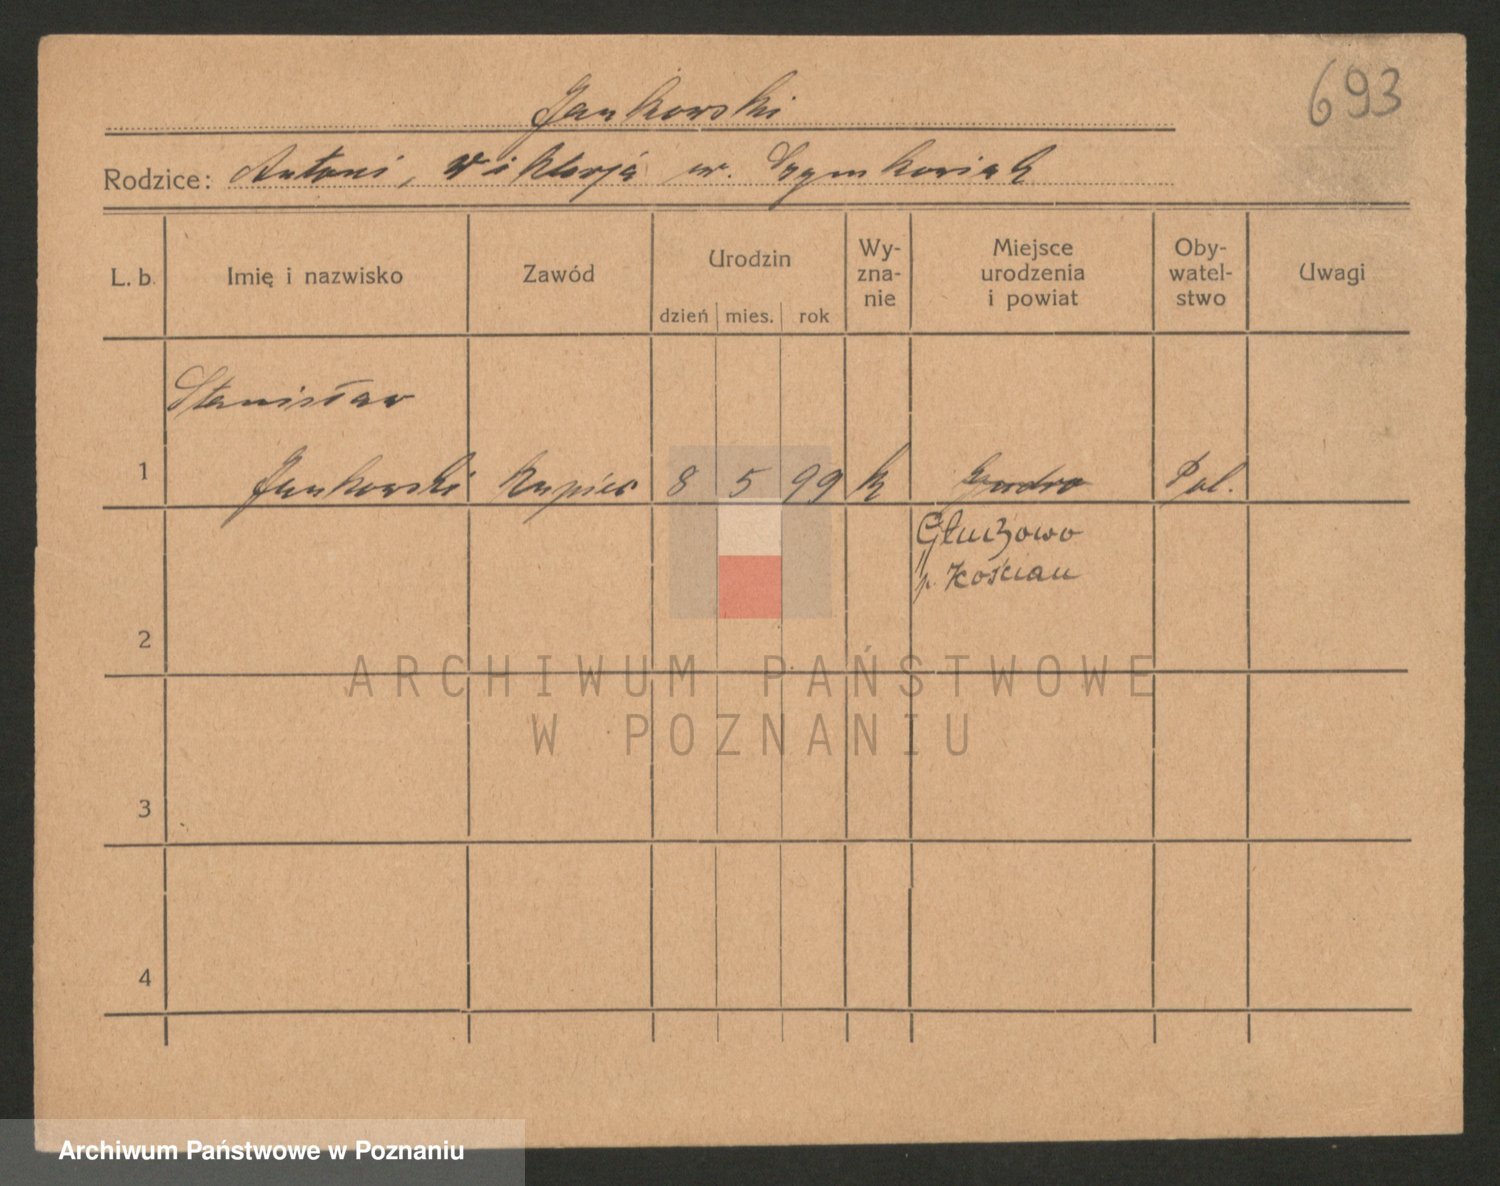 693
Jankowski
Rodzice: Antoni, Wiktorja ur. Szymkowiak
L. b. Imię i nazwisko Zawód Urodzin Wy-zna-nie Miejsce urodzenia i powiat Oby-watel-stwo Uwagi
dzień mies. rok
Stanisław
1 Jankowski kupiec 8 5 99 k Pol.
Głuchowo
p. Kościan
2
3
4
ARCHIWUM PAŃSTWOWE
W POZNANIU
Archiwum Państwowe w Poznaniu